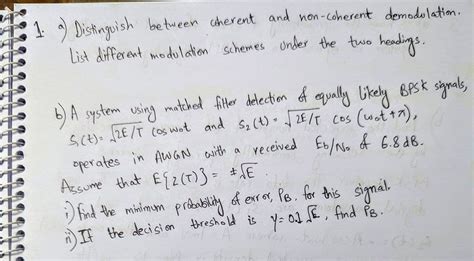 1. a) Distinguish between coherent and non-coherent demodulation.
List different modulation schemes under the two headings.
b) A system using matched filter detection of equally likely BPSK signals,
s₁(t) = √2E/T cos ω₀t and s₂(t) = √2E/T cos (ω₀t + π),
operates in AWGN with a received Eb/No of 6.8 dB.
Assume that E{z(T)} = ±√E.
i) Find the minimum probability of error, PB. for this signal.
ii) If the decision threshold is γ = 0.1 √E, find PB.